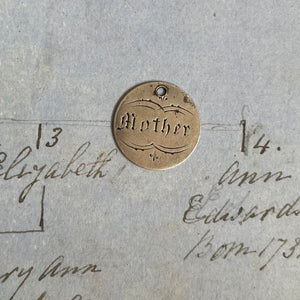 Mother
13
Elizabeth
14.
Ann
Edwards
Born 173
ry Ann